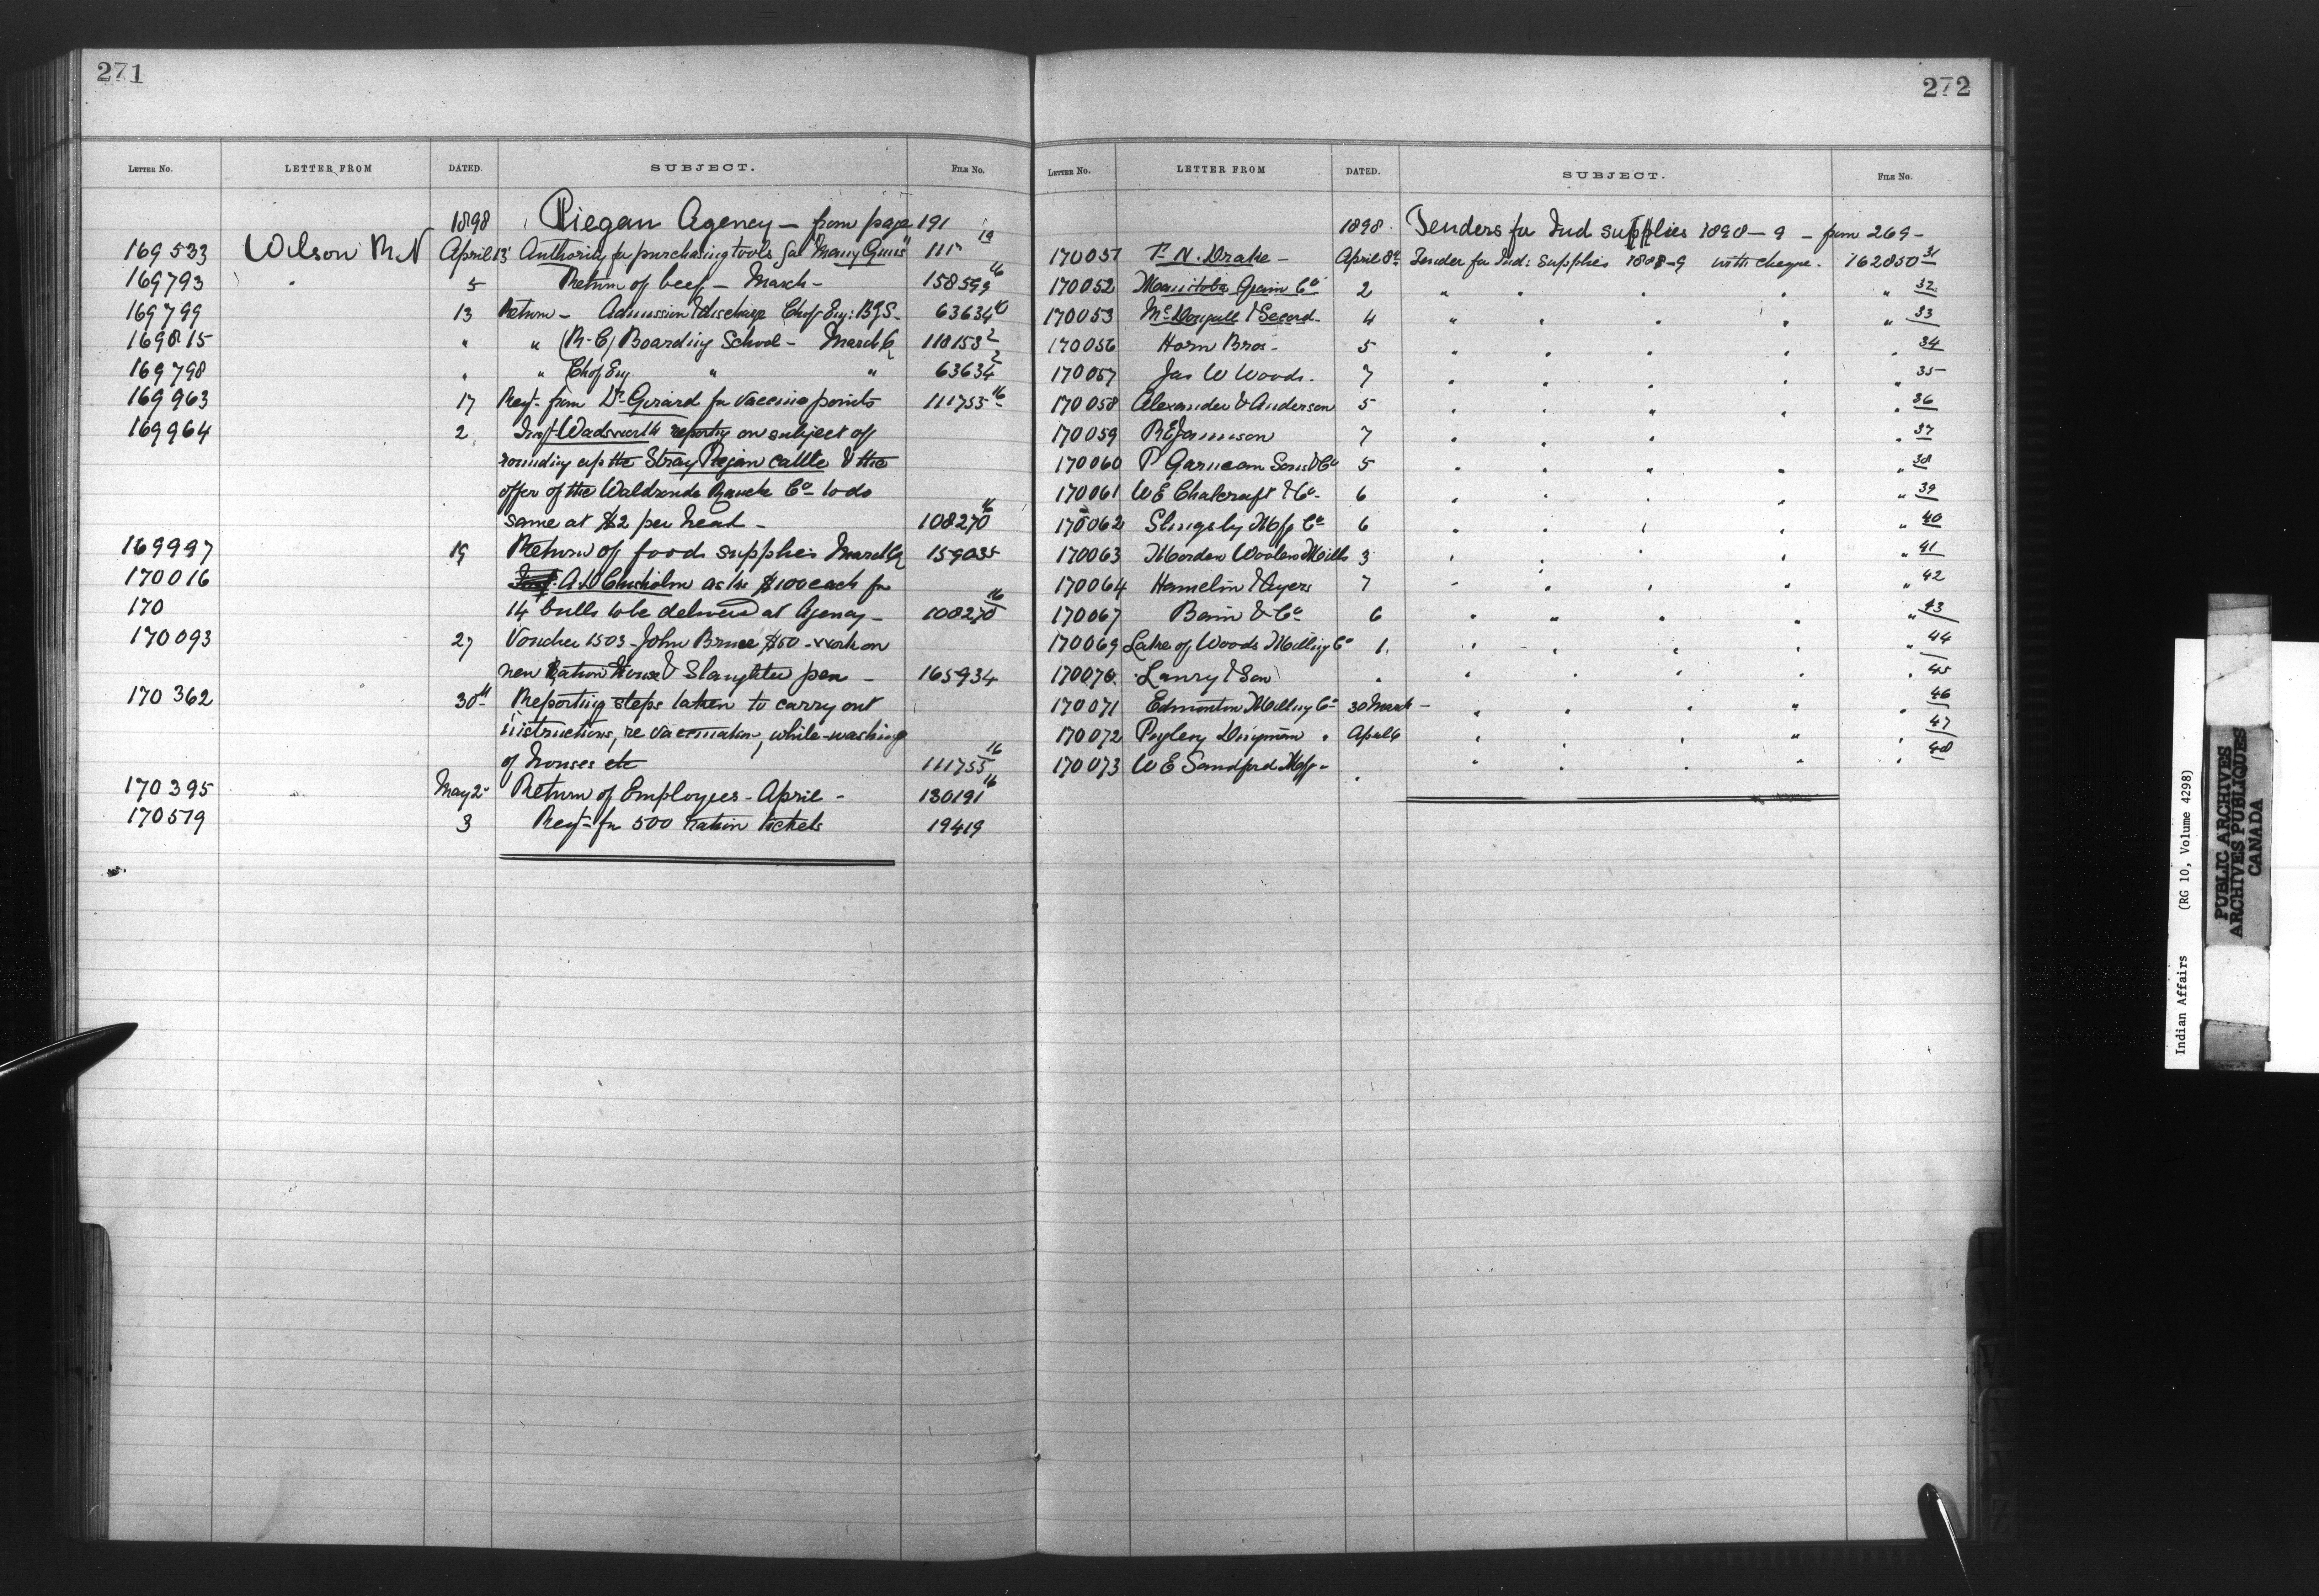 271
LETTER NO. LETTER FROM DATED. SUBJECT. FILE NO.
1898 Piegan Agency — from page 191
169533 Wilson R.N April 13 Authority for purchasing tools for "Many Guns" 111 19
169793 " 5 Return of beef — March — 158599 16
169799 13 Return — Admission & discharge Ch of Eng: B.G.S. 63634
169815 " " (R.C) Boarding School — March Qr 118153 2
169798 " " Ch of Eng " " 63634 2
169963 17 Reqt. from Dr. Girard for vaccine points 111755 16
169964 2 Insp. Wadsworth reporting on subject of
rounding up the Stray Piegan cattle & the
offer of the Waldrond Ranch Co. to do
same at $2 per head — 108270 16
169997 19 Return of food supplies March Qr 159035
170016 A. Chisholm asks $100 each for
170 14 bulls to be delivered at Agency — 108270 16
170093 27 Voucher 1503 — John Bruce $50 — work on
new Ration House & Slaughter pen — 165934
170362 30th Reporting steps taken to carry out
instructions, re vaccination, white-washing
of houses etc 111755 16
170395 May 2 Return of Employees — April — 130191 16
170519 3 Reqt. for 500 ration tickets 19419
272
LETTER NO. LETTER FROM DATED. SUBJECT. FILE NO.
1898. Tenders for Ind supplies 1898—9 — from 269 —
170051 F. N. Drake — April 8th Tender for Ind: Supplies 1898—9 with cheque. 162850 31
170052 Manitoba Grain Co 2 " " " " " 32
170053 McDougall & Secord — 4 " " " " " 33
170056 Horn Bros — 5 " " " " " 34
170057 Jas W Woods. 7 " " " " " 35
170058 Alexander & Anderson 5 " " " " " 36
170059 R E Jamieson 7 " " " " " 37
170060 P Garneau Sons & Co 5 " " " " " 38
170061 W E Chalcraft & Co — 6 " " " " " 39
170062 Slingsby Mfg Co 6 " " " " " 40
170063 Morden Woolen Mills 3 " " " " " 41
170064 Hamelin & Ayers 7 " " " " " 42
170067 Bain & Co 6 " " " " " 43
170069 Lake of Woods Milling Co 1. " " " " " 44
170070. Lanry & Son " " " " " " 45
170071 Edmonton Milling Co — 30 March — " " " " " 46
170072 Pugley Dingman " April 6 " " " " " 47
170073 W E Sandford Mfg — " " " " " " 48
Indian Affairs (RG 10, Volume 4298)
PUBLIC ARCHIVES
ARCHIVES PUBLIQUES
CANADA